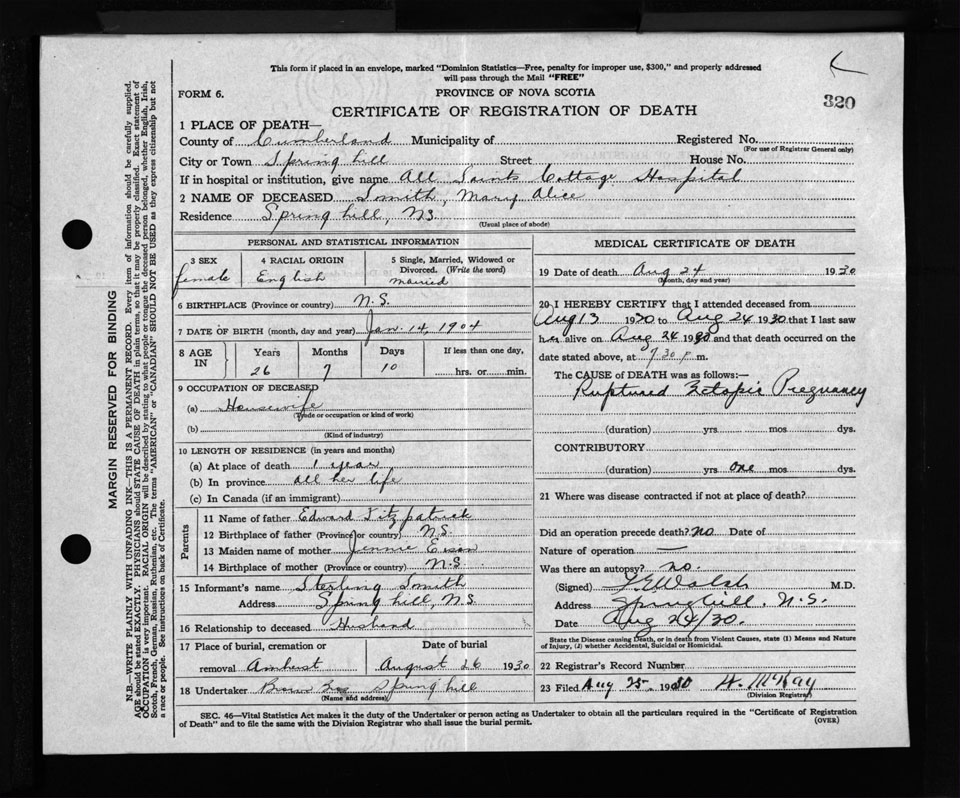 This form if placed in an envelope, marked "Dominion Statistics—Free, penalty for improper use, $300," and properly addressed
will pass through the Mail "FREE"
FORM 6.
PROVINCE OF NOVA SCOTIA
320
CERTIFICATE OF REGISTRATION OF DEATH
1 PLACE OF DEATH—
County of Cumberland Municipality of Registered No.
(For use of Registrar General only)
City or Town Spring hill Street House No.
If in hospital or institution, give name All Saints Cottage Hospital
2 NAME OF DECEASED Smith, Mary Alice
Residence Spring hill, N.S.
(Usual place of abode)
PERSONAL AND STATISTICAL INFORMATION
3 SEX 4 RACIAL ORIGIN 5 Single, Married, Widowed or
Divorced. (Write the word)
female English Married
6 BIRTHPLACE (Province or country) N.S.
7 DATE OF BIRTH (month, day and year) Jan. 14, 1904
8 AGE IN Years Months Days If less than one day,
26 7 10 hrs. or min.
9 OCCUPATION OF DECEASED
(a) Housewife
(Trade or occupation or kind of work)
(b)
(Kind of industry)
10 LENGTH OF RESIDENCE (in years and months)
(a) At place of death 1 year
(b) In province all her life
(c) In Canada (if an immigrant)
Parents
11 Name of father Edward Fitzpatrick
12 Birthplace of father (Province or country) N.S.
13 Maiden name of mother Jennie
14 Birthplace of mother (Province or country) N.S.
15 Informant's name Sterling Smith
Address Spring hill, N.S.
16 Relationship to deceased Husband
17 Place of burial, cremation or Date of burial
removal Amherst August 26 1930
18 Undertaker Spring hill
(Name and address)
MEDICAL CERTIFICATE OF DEATH
19 Date of death Aug 24 1930
(Month, day and year)
20 I HEREBY CERTIFY that I attended deceased from
Aug 13 1930 to Aug 24 1930 that I last saw
her alive on Aug 24 1930 and that death occurred on the
date stated above, at 7.30 p. m.
The CAUSE of DEATH was as follows:—
Ruptured Ectopic Pregnancy
(duration) yrs mos dys.
CONTRIBUTORY
(duration) yrs one mos dys.
21 Where was disease contracted if not at place of death?
Did an operation precede death? no Date of
Nature of operation —
Was there an autopsy? no.
(Signed) Walsh M.D.
Address Springhill, N.S.
Date Aug 24/30.
State the Disease causing Death, or in death from Violent Causes, state (1) Means and Nature
of Injury, (2) whether Accidental, Suicidal or Homicidal.
22 Registrar's Record Number
23 Filed Aug 25. 1930 H. McKay
(Division Registrar)
SEC. 46—Vital Statistics Act makes it the duty of the Undertaker or person acting as Undertaker to obtain all the particulars required in the "Certificate of Registration
of Death" and to file the same with the Division Registrar who shall issue the burial permit.
(OVER)
MARGIN RESERVED FOR BINDING
N.B.—WRITE PLAINLY WITH UNFADING INK—THIS IS A PERMANENT RECORD. Every item of information should be carefully supplied.
AGE should be stated EXACTLY. PHYSICIANS should STATE CAUSE OF DEATH in plain terms, so that it may be properly classified. Exact statement of
OCCUPATION is very important. RACIAL ORIGIN will be described by stating to what people or tongue the deceased person belonged, whether English, Irish,
Scotch, French, German, Russian, Ruthenian, etc. The terms "AMERICAN" or "CANADIAN" SHOULD NOT BE USED as they express citizenship but not
a race or people. See instructions on back of Certificate.